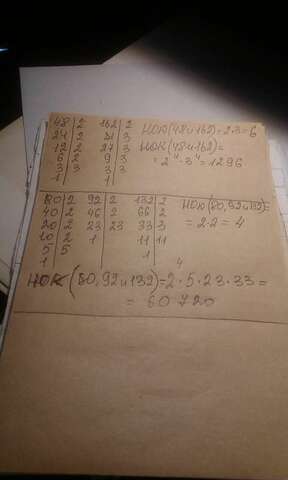 48 2 162 2 НОК(48 и 162)=2·3=6
24 2 81 3 НОК(48 и 162)=
12 2 27 3 = 2⁴·3⁴=1296
6 2 9 3
3 3 3 3
1 1
80 2 92 2 132 2 НОК(80,92 и 132)=
40 2 46 2 66 2 = 2·2 = 4
20 2 23 23 33 3
10 2 1 11 11
5 5 1
1
НОК (80,92 и 132)=2⁴·5·23·33=
= 60720